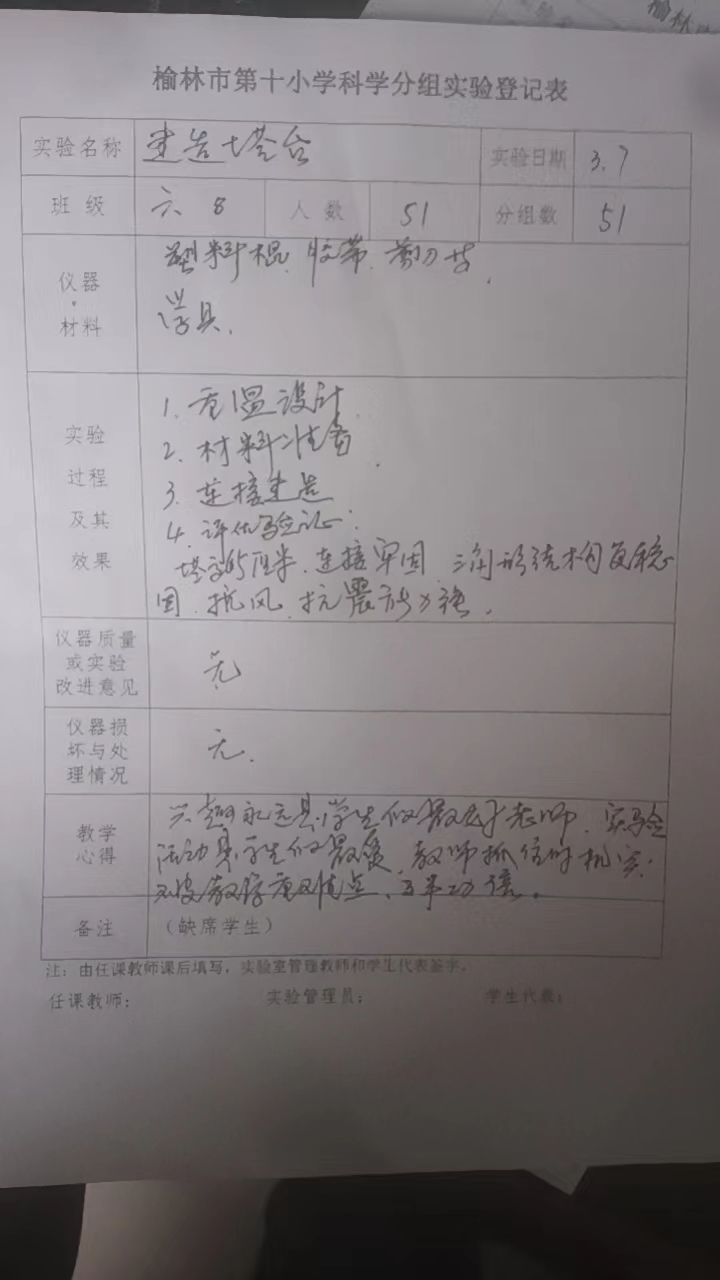 榆林市第十小学科学分组实验登记表
实验名称 建造塔台 实验日期 3.7
班级 六.8 人数 51 分组数 51
仪器·材料 塑料棍、胶带、剪刀等
学具.
实验过程及其效果
1.重温设计
2.材料准备
3.连接建造
4.评估验证:
塔高45厘米.连接牢固 三角形结构更稳
固.抗风.抗震能力强.
仪器质量或实验改进意见 无
仪器损坏与处理情况 无.
教学心得 兴趣永远是学生们最好老师.实验
活动是学生们最爱.教师抓住时机突
破教学重难点.事半功倍.
备注 (缺席学生)
注:由任课教师课后填写,实验室管理教师和学生代表签字.
任课教师: 实验管理员: 学生代表: